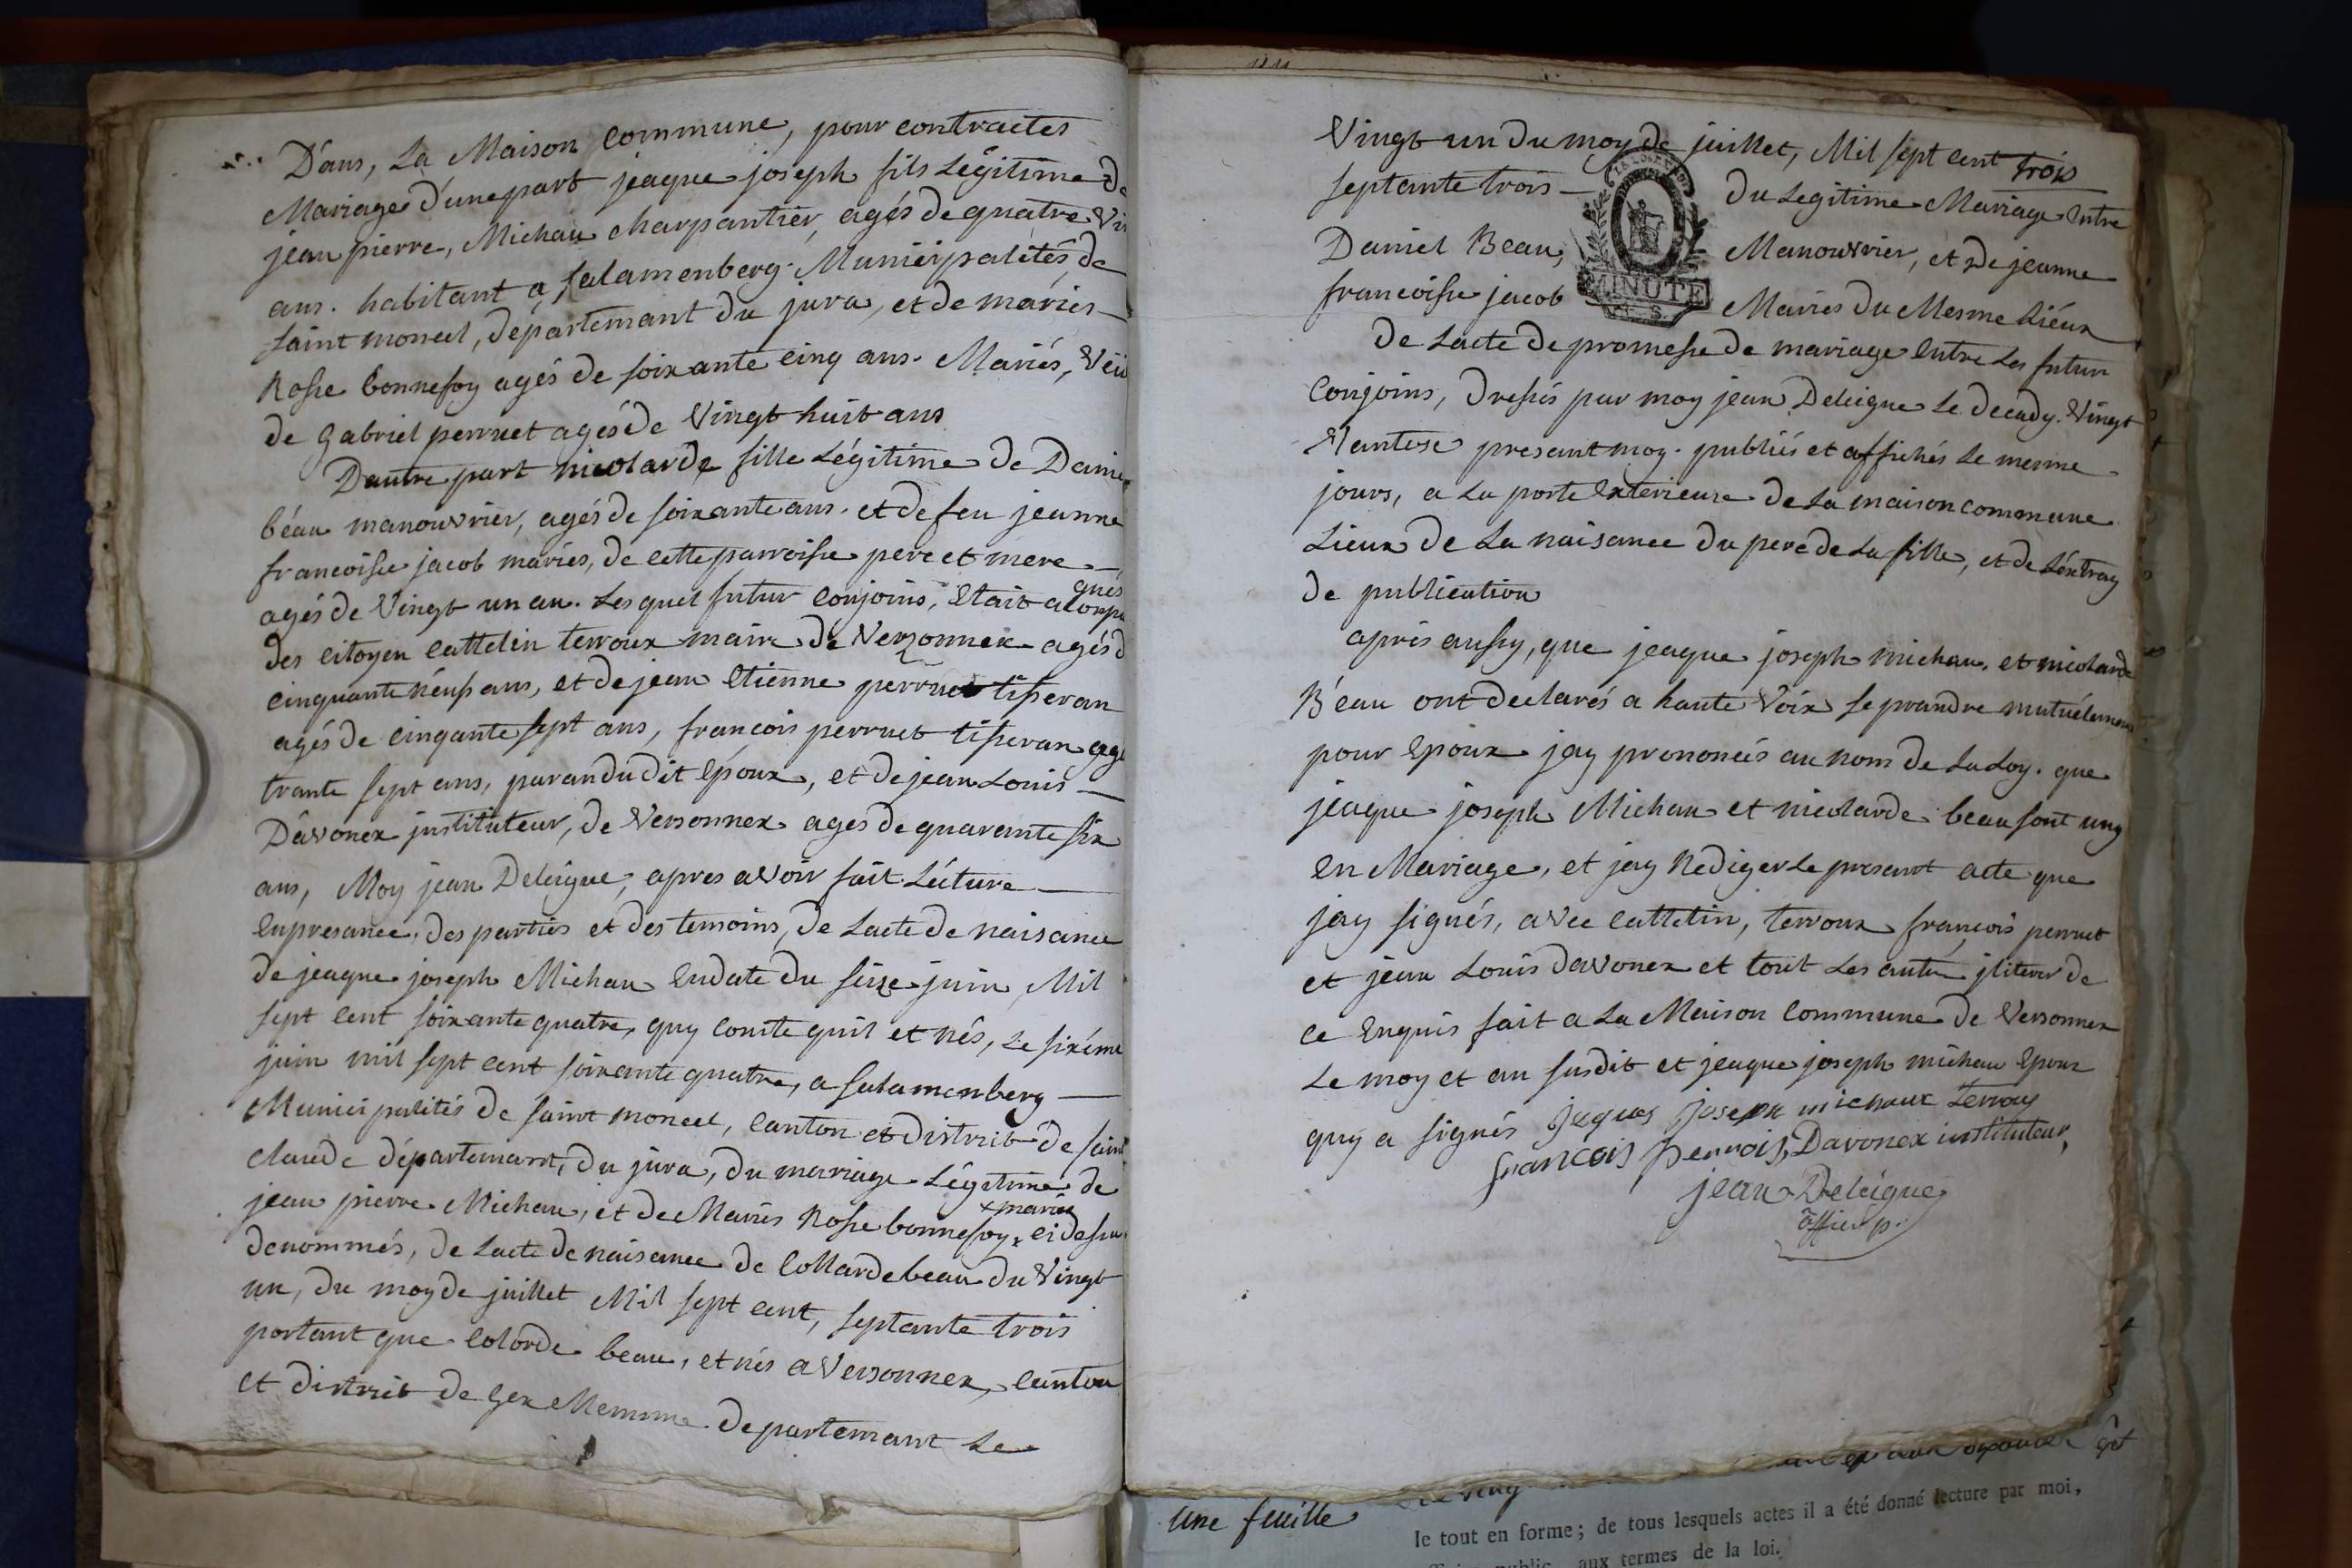 Dans, La Maison Commune, pour contractes
Mariage d'une part jeaque joseph fils Légitime de
jean pierre, Michau charpantier, agés de quatre Vin
ans. habitant a salamenberg. Municipalités de
saint moncel, départemant du jura, et de maries
Rosse bonnefoy agés de soixante cinq ans. Mariés, Veu
de gabriel perruet agés de Vingt huit ans
Dautre part nicolarde fille Légitime de Danie
béau manouvrier, agés de soixante ans. et de feu jeanne
francoisse jacob mariés, de cette parroisse pere et mere
agés de Vingt un an. Lesquel futur Conjoins, Etait acompa
gnés
des citoyen cattelin terroux maire de Versonnex agés d
cinquante néuf ans, et de jean Etienne perruet tisseran
agés de cinqante sept ans, françois perruet tisseran age
trante sept ans, parandudit Epoux, et de jean Louis
Davonex justituteur, de Versonnex ages de quarante six
ans, Moy jean Deleigue, apres avoir fait Lécture
En presance, des parties et des temoins, de Lacte de naisance
de jeaque joseph Michau En date du seize juin, Mil
sept Cent soixante quatre, quy Conste quil et nés, Le sixéme
juin mil sept cent soixante quatre, a salamenberg
Municipalités de saint moncel, Canton et district de saint
claude département, du jura, du mariage Légitime de
jean pierre Michau, et de Maries Rosse bonnefoy, x ci dessu
x mariés
denommés, de Lacte de naisance de Collarde beau du Vingt
un, du moy de juillet Mil sept cent, septante trois
portant que Colorde beau, et nés a Versonnex, Canton
et district de Gex Memme departemant Le
Vingt un du moy de juillet, Mil sept cent trois
septante trois du Legitime Mariage Entre
Daniel Beau, Manouvrier, et de jeanne
francoisse jacob Mariés du Mesme Liéux
MINUTE
De Lacte de promesse de mariage Entre Les futur
Conjoins, dressés par moy jean Deleigue Le decady. Vingt
Vantose presant moy. publiés et affichés Le mesme
jours, a La porte Exterieure de La maison commune
Lieux de La naisance du pere de La fille, et de Léxtray
de publication
aprés aussy, que jeaque joseph michau, et nicolarde
Béau ont declarés a haute Voix se prandre mutuélemen
pour Epoux jay prononcés au nom de La Loy. que
jeaque joseph Michau et nicolarde beau sont uny
En Mariage, et jay Rediger Le presant acte que
jay signés, avec cattelin, terroux françois perruet
et jean Louis davonex et tout Les autre jliterer de
ce Enquis fait a La Maison Commune de Versonnex
Le moy et an susdit et jeaque joseph michau Epoux
quy a signés jeques joseph michaux Terroux
francois perrois, Davonex instituteur,
jean Deleigue
officier p.
une feuille
le tout en forme; de tous lesquels actes il a été donné lecture par moi,
public aux termes de la loi.